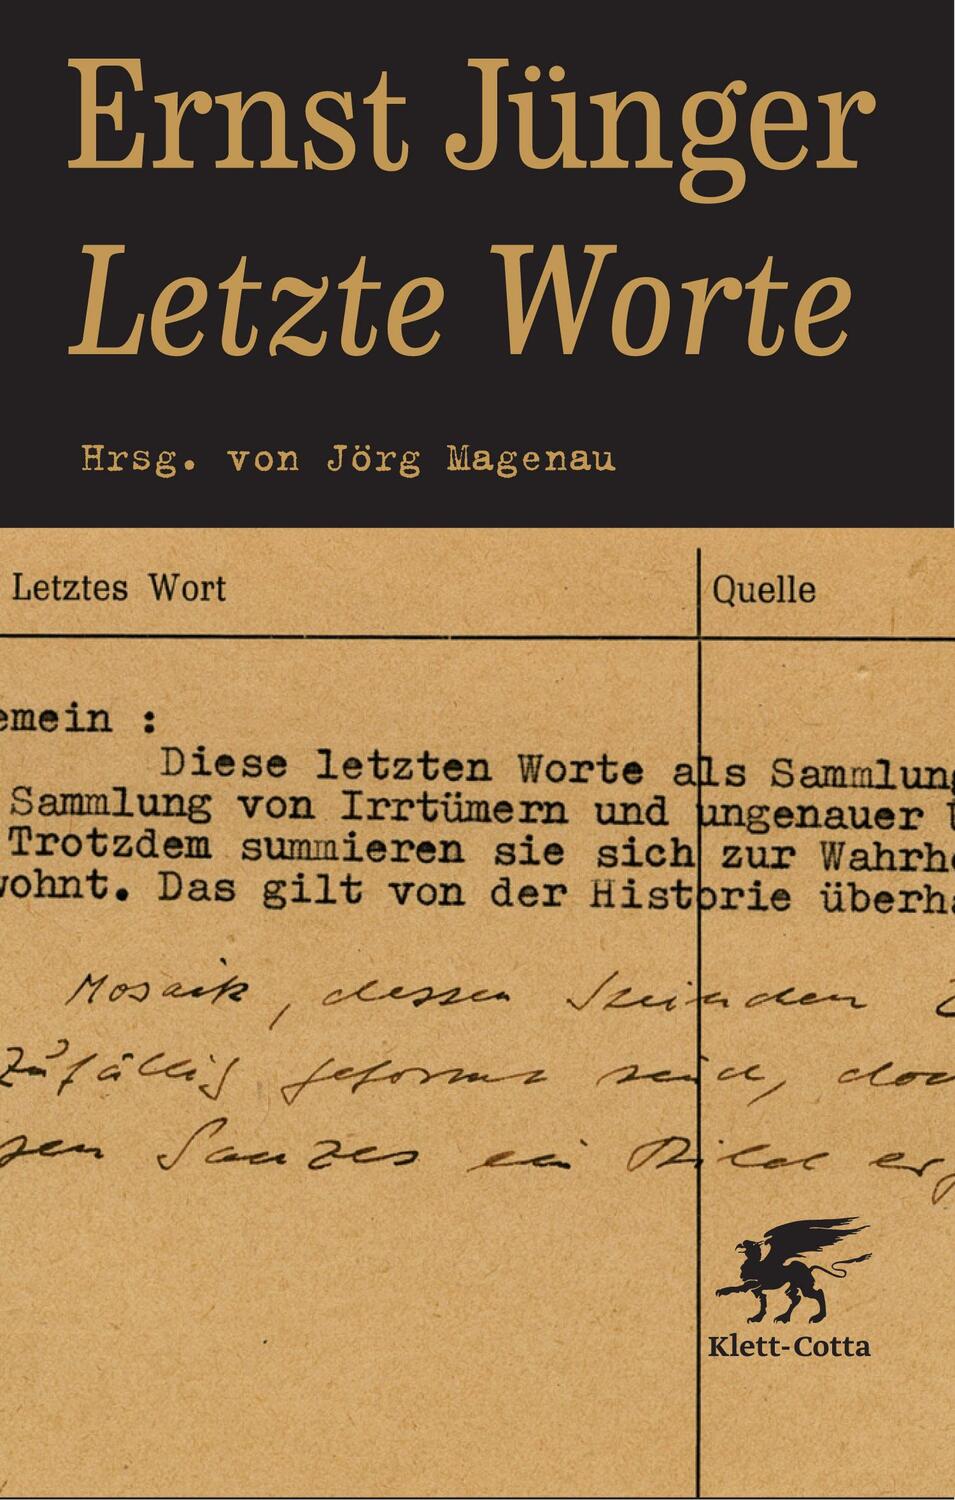 Ernst Jünger
Letzte Worte
Hrsg. von Jörg Magenau
Letztes Wort
Quelle
emein :
Diese letzten Worte als Sammlung
Sammlung von Irrtümern und ungenauer
Trotzdem summieren sie sich zur Wahrhe
wohnt. Das gilt von der Historie überha
Mosaik, dessen
zufällig geformt sind, doch
Ganzes ein Bild
Klett-Cotta